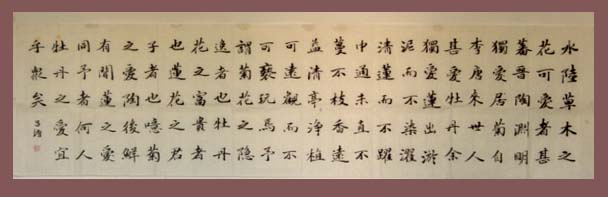 水陸草木之
花可愛者甚
蕃晉陶淵明
獨愛居菊自
李唐來世人
甚愛牡丹余
獨愛蓮出淤
泥而不染濯
清漣而不躍
中通外直不
蔓不枝香遠
益清亭淨植
可遠觀而不
可褻玩焉予
謂菊花之隱
逸者也牡丹
花之富貴者
也蓮花之君
子者也噫菊
之愛陶後鮮
有聞蓮之愛
同予者何人
牡丹之愛宜
乎衆矣